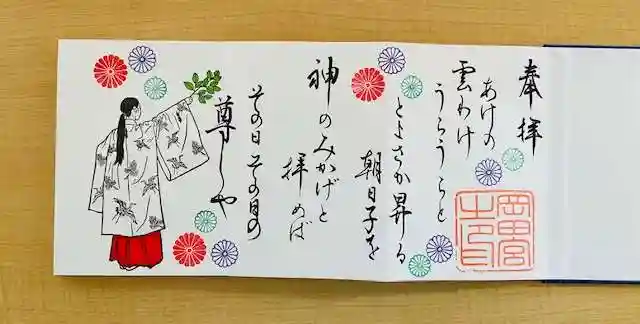 奉拝
岡田宮
之印
あけの
雲わけ
うらうらと
とよさか昇る
朝日子を
神のみかげと
拝めば
その日その日の
尊しや